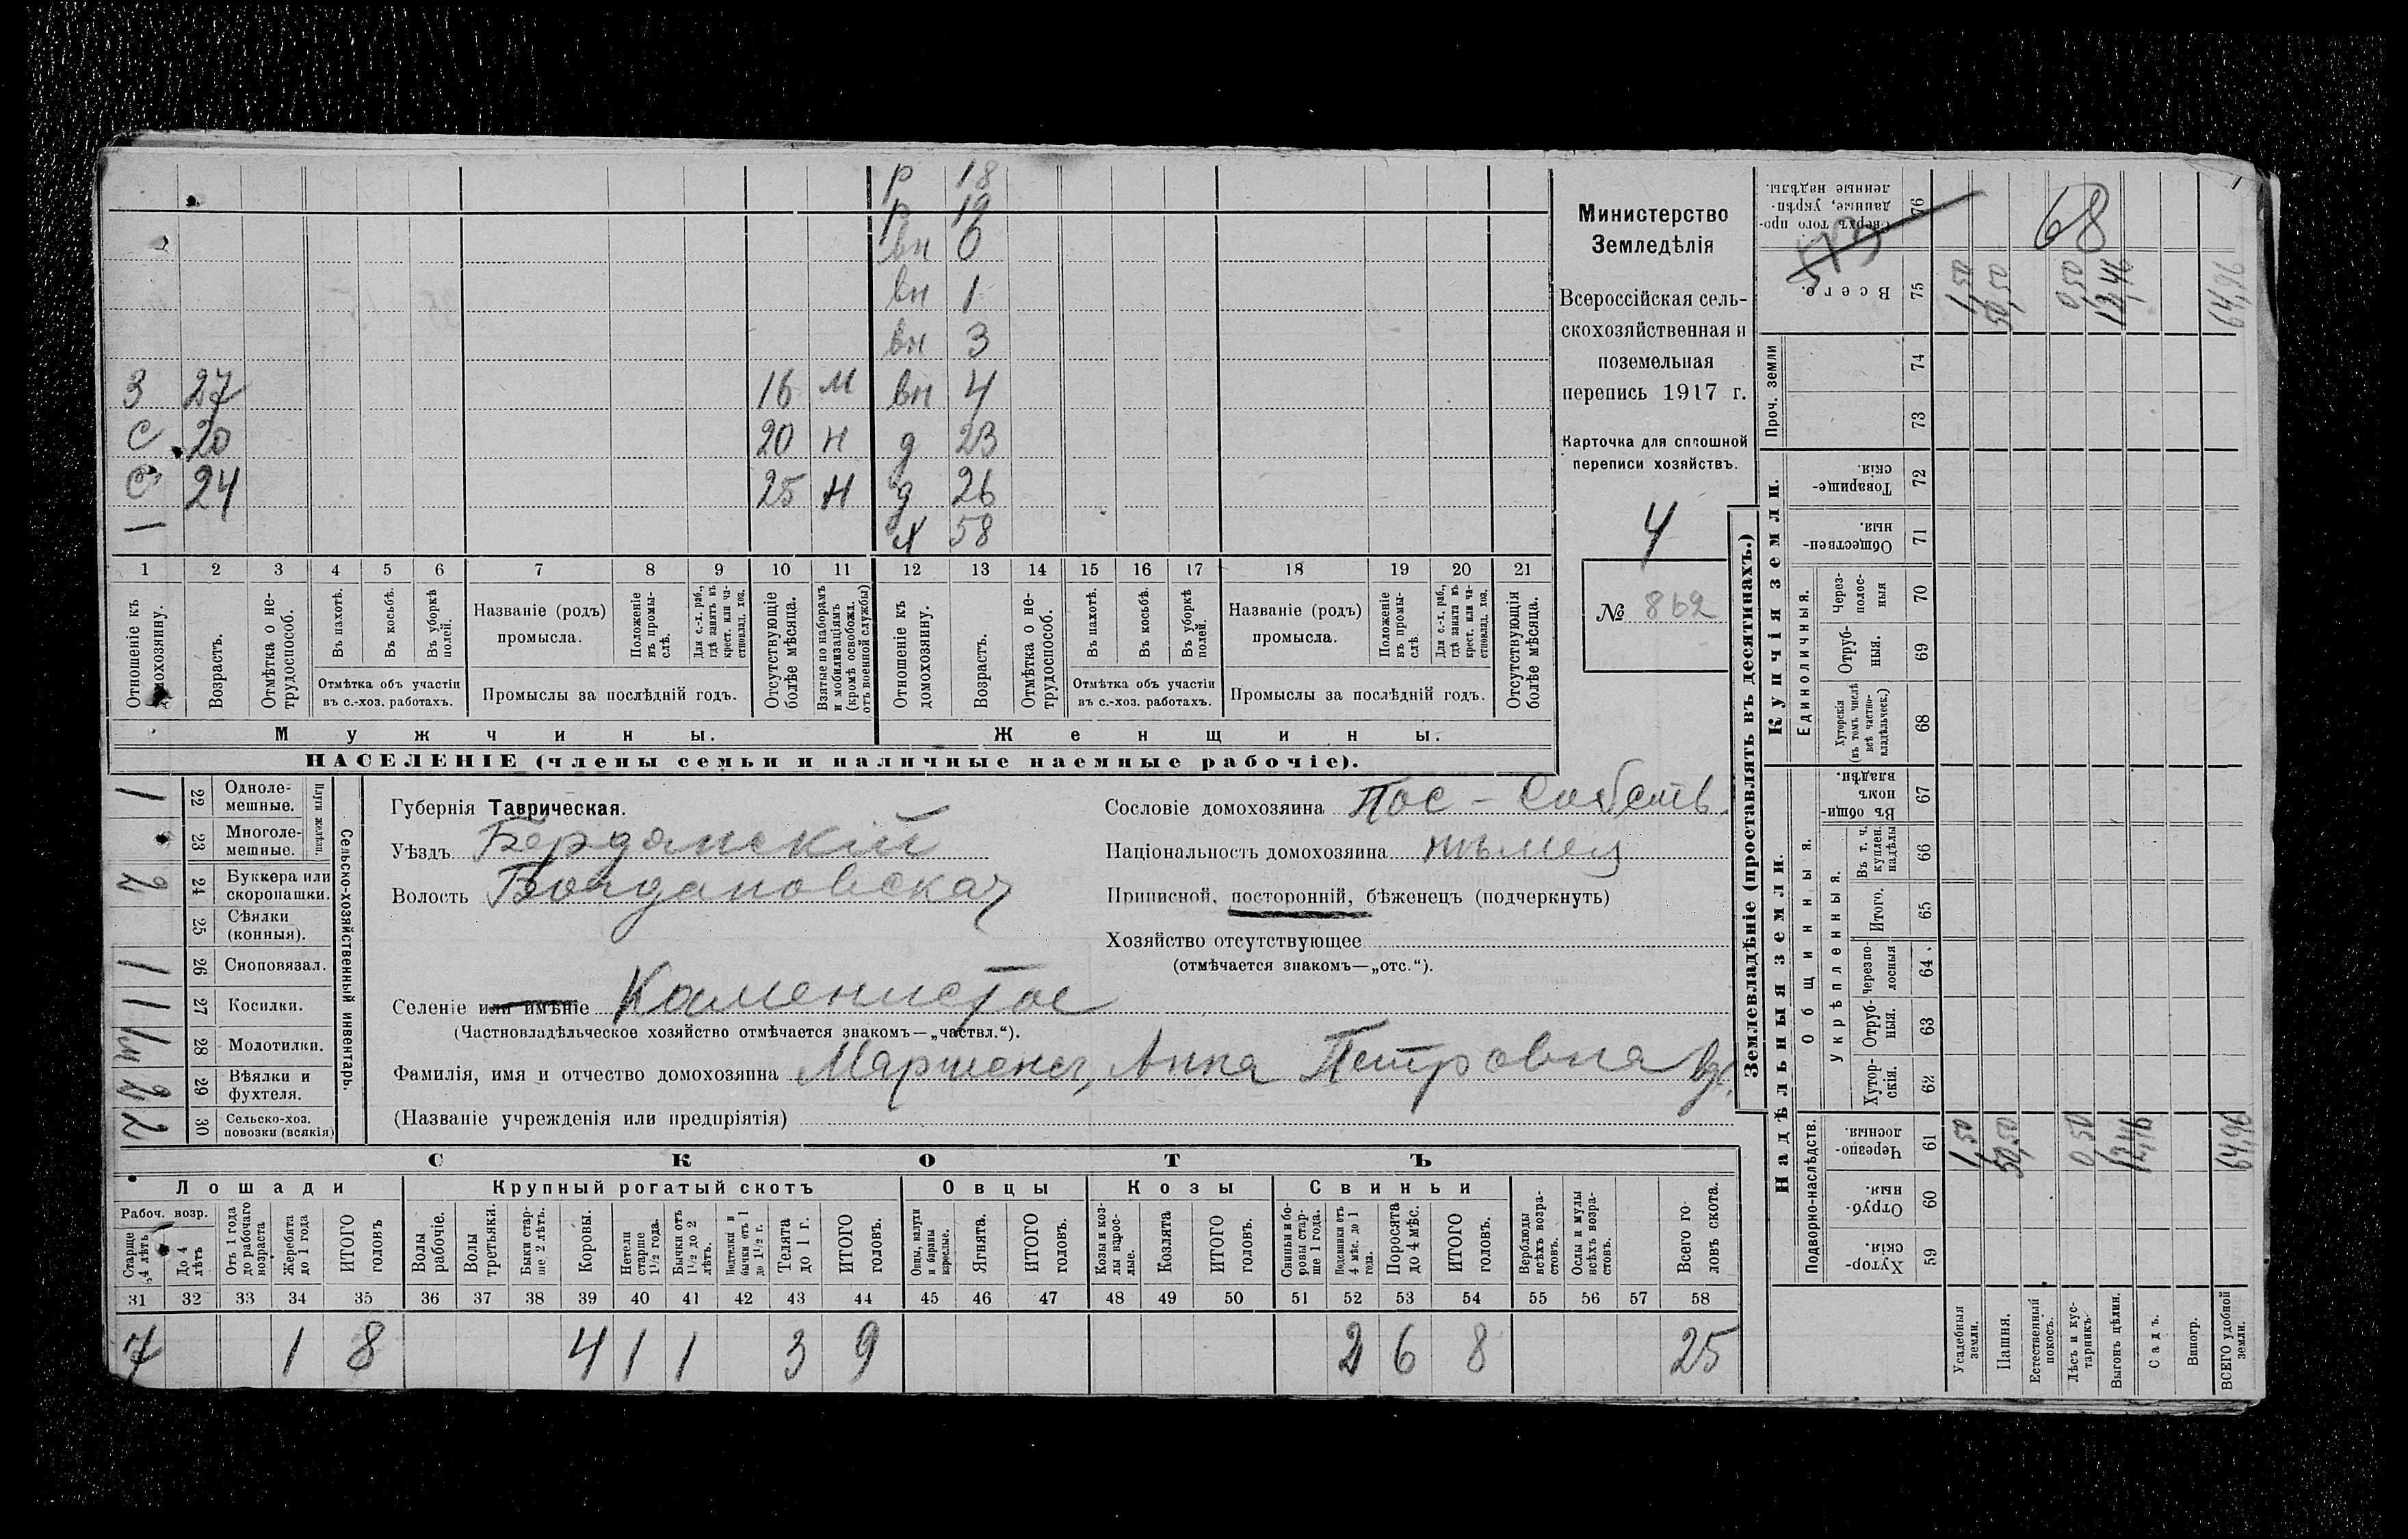 р 18
р 19
вн 0
вн 1
вн 3
З 27 16 м вн 4
С 20 20 н д 23
С 24 25 н д 26
— х 58
1 2 3 4 5 6 7 8 9 10 11 12 13 14 15 16 17 18 19 20 21
Отношеніе къ домохозяину.
Возрастъ.
Отмѣтка о нетрудоспособ.
Въ пахотѣ.
Въ косьбѣ.
Въ уборкѣ полей.
Отмѣтка объ участіи въ с.-хоз. работахъ.
Названіе (родъ) промысла.
Положеніе въ промыслѣ.
Для с.-х. раб., гдѣ занятъ въ крест. или частновлад. хоз.
Промыслы за послѣдній годъ.
Отсутствующіе болѣе мѣсяца.
Взятые по наборамъ и мобилизаціямъ (кромѣ освобожд. отъ военной службы)
Отношеніе къ домохозяину.
Возрастъ.
Отмѣтка о нетрудоспособ.
Въ пахотѣ.
Въ косьбѣ.
Въ уборкѣ полей.
Отмѣтка объ участіи въ с.-хоз. работахъ.
Названіе (родъ) промысла.
Положеніе въ промыслѣ
Для с.-х. раб., гдѣ занята въ крест. или частновлад. хоз.
Промыслы за послѣдній годъ.
Отсутствующія болѣе мѣсяца.
Мужчины.
Женщины.
НАСЕЛЕНІЕ (члены семьи и наличные наемные рабочіе).
Министерство
Земледѣлія
Всероссійская сель-
скохозяйственная и
поземельная
перепись 1917 г.
Карточка для сплошной
переписи хозяйствъ.
4
№ 862
Сельско-хозяйственный инвентарь.
Плуги желѣзн.
1 22 Одноле-мешные.
23 Многоле-мешные.
2 24 Буккера или скоропашки.
25 Сѣялки (конныя).
1 26 Сноповязал.
1 27 Косилки.
28 Молотилки.
29 Вѣялки и фухтеля.
2 30 Сельско-хоз. повозки (всякія)
Губернія Таврическая.
Уѣздъ Бердянскій
Волость Богдановская
Селеніе или имѣніе Каменистое
(Частновладѣльческое хозяйство отмѣчается знакомъ—„частвл.“).
Фамилія, имя и отчество домохозяина Мартенсъ, Анна Петровна вд.
(Названіе учрежденія или предпріятія)
Сословіе домохозяина Пос - Собств.
Національность домохозяина нѣмец
Приписной, посторонній, бѣженецъ (подчеркнуть)
Хозяйство отсутствующее
(отмѣчается знакомъ—„отс.“).
СКОТЪ
Лошади
Крупный рогатый скотъ
Овцы
Козы
Свиньи
Рабоч. возр.
Старше 4 лѣтъ
До 4 лѣтъ
Отъ 1 года до рабочаго возраста
Жеребята до 1 года
ИТОГО головъ
Волы рабочіе.
Волы третьяки.
Быки старше 2 лѣтъ.
Коровы.
Нетели старше 1½ года.
Бычки отъ 1½ до 2 лѣтъ.
бычки отъ 1 до 1½ г.
Телята до 1 г.
ИТОГО головъ.
Овцы, валухи и бараны взрослые.
Ягнята.
ИТОГО головъ.
Козы и козлы взрослые.
Козлята
ИТОГО головъ.
Свиньи и боровы старше 1 года.
Подсвинки отъ 4 мѣс. до 1 года.
Поросята до 4 мѣс.
ИТОГО головъ.
Верблюды всѣхъ возрастовъ.
Ослы и мулы всѣхъ возрастовъ.
Всего головъ скота.
31 32 33 34 35 36 37 38 39 40 41 42 43 44 45 46 47 48 49 50 51 52 53 54 55 56 57 58
7 1 8 4 1 1 3 9 2 6 8 25
Землевладѣніе (проставлять въ десятинахъ.)
Надѣльныя земли.
Купчія земли.
Подворно-наслѣдств.
Общинныя.
Укрѣпленныя.
Единоличныя.
Проч. земли
59 Хутор-скія.
60 Отруб-ныя.
61 Черезпо-лосныя.
62 Хутор-скія.
63 Отруб-ныя.
64 Черезпо-лосныя
65 Итого.
66 Въ т. ч. куплен. надѣлы
67 Въ общинномъ владѣн.
68 Хуторскія (въ томъ числѣ всѣ частно-владѣльческ.)
69 Отруб-ныя.
70 Через-полос-ныя
71 Обществен-ныя.
72 Товарище-скія.
73
74
75 Всего.
76 Сверхъ того проданные, укрѣпленные надѣлы.
573
68
Усадебныя земли. 1,50 1,50
Пашня. 50,50 50,50
Естественный покосъ.
Лѣсъ и кустарникъ. 0,50 0,50
Выгонъ цѣлин. 12,46 12,46
Садъ.
Виногр.
ВСЕГО удобной земли. 64,96 64,96